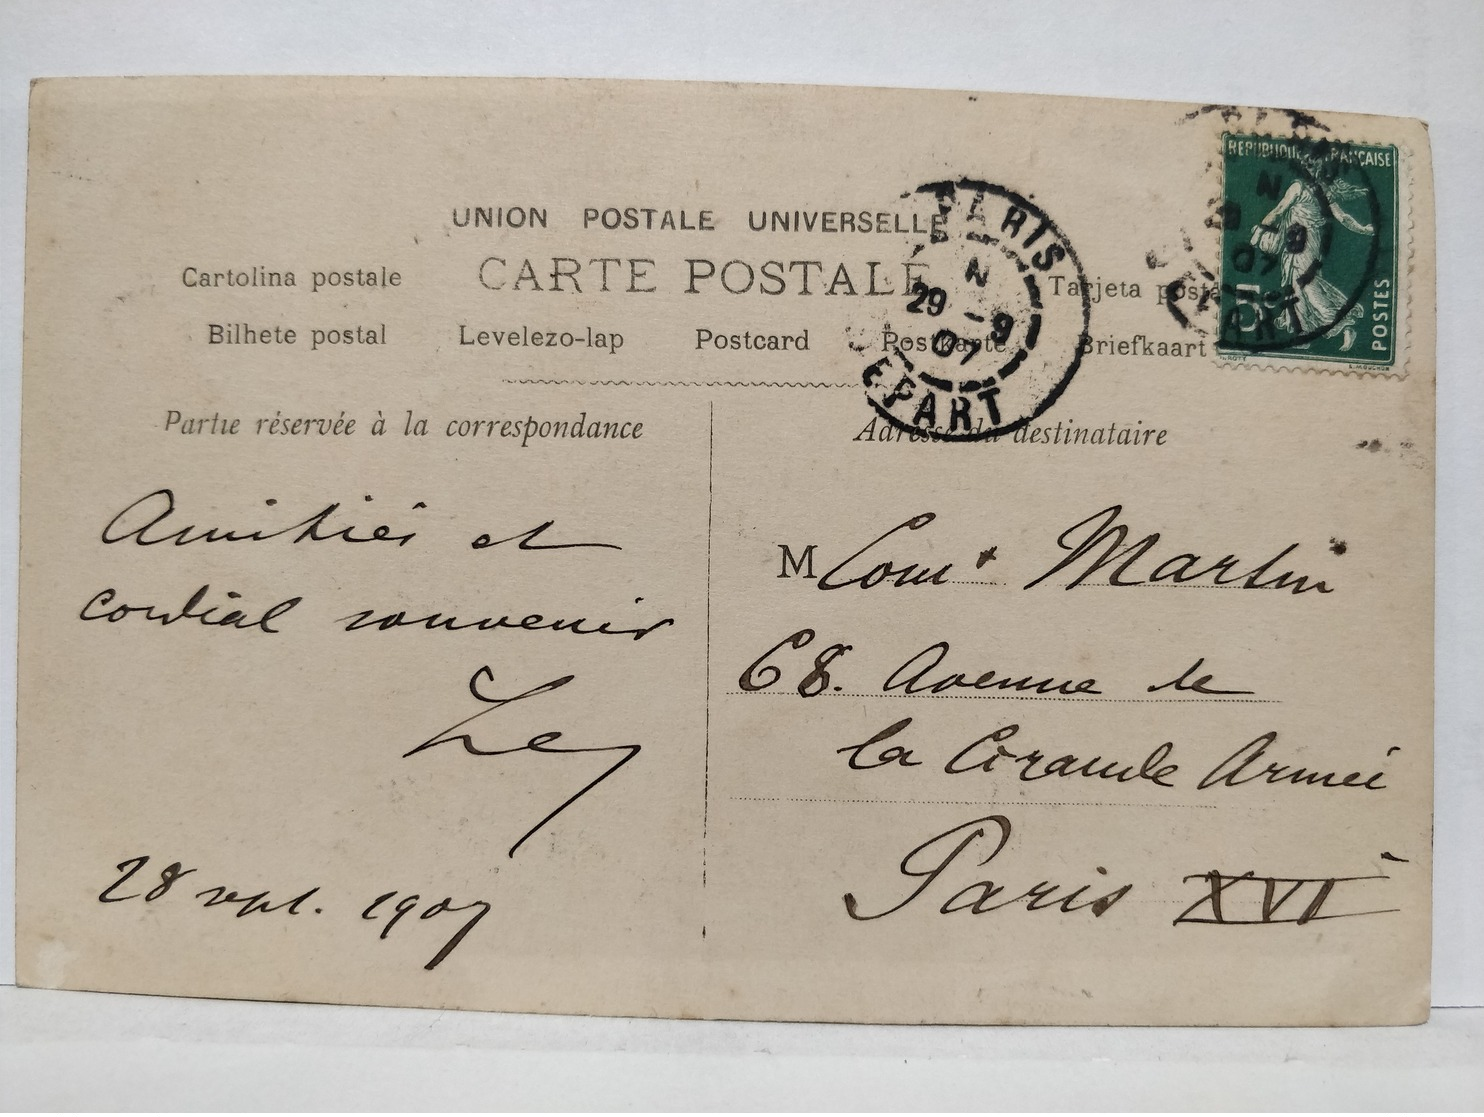 UNION POSTALE UNIVERSELLE
CARTE POSTALE
Cartolina postale
Tarjeta postal
Bilhete postal
Levelezo-lap
Postcard
Postkarte
Briefkaart
Partie réservée à la correspondance
Adresse du destinataire
Amitiés et
cordial souvenir
Ley
28 sept. 1907
M Louis Martin
68. Avenue de
la Grande Armée
Paris XVI
PARIS
N
29 - 9
07
DEPART
REPUBLIQUE FRANÇAISE
5
POSTES
N
29 - 9
07
DEPART